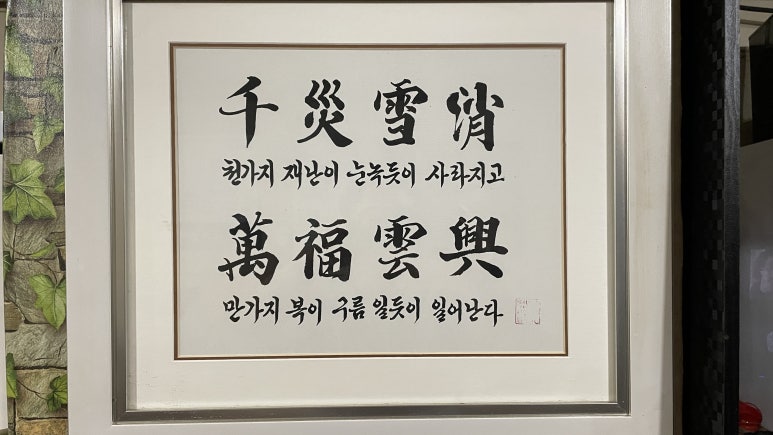 千災雪消
천가지 재난이 눈녹듯이 사라지고
萬福雲興
만가지 복이 구름 일듯이 일어난다